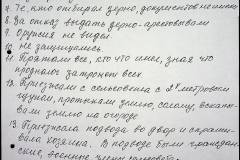 7. Те, кто отбирал зерно, документов не имели
8. За отказ выдать зерно - арестовывали
9. Оружия не видел
10. не защищались.
11. Прятали все, кто что имел, зная что
продналог затронет всех
12. Приезжали с сельсовета с 2х метровыми
щупами, протыкали землю, солому, вскапы-
вали землю на огороде
13. Приезжала подвода во двор и спраши-
вала хозяина. В подводе были граждан-
ские, военные